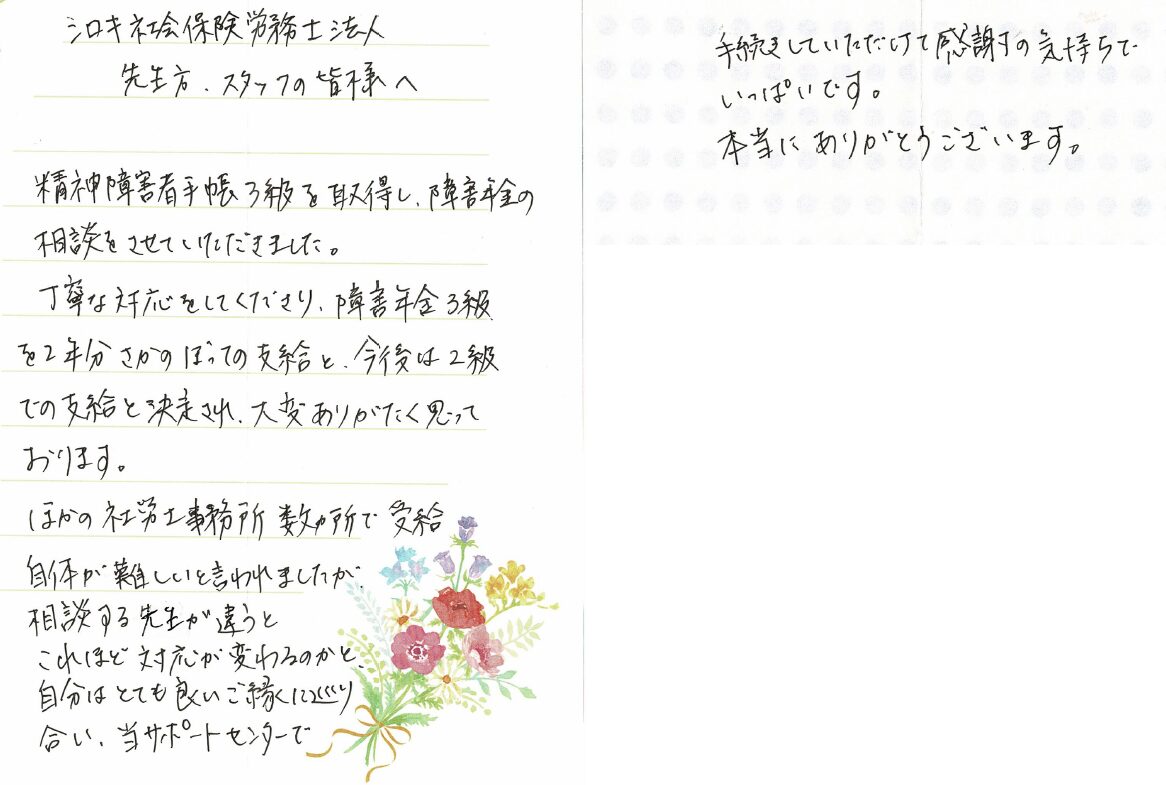 シロキ社会保険労務士法人
先生方、スタッフの皆様へ
精神障害者手帳3級を取得し、障害年金の
相談をさせていただきました。
丁寧な対応をしてくださり、障害年金3級
を2年分さかのぼっての支給と、今後は2級
での支給と決定され、大変ありがたく思って
おります。
ほかの社労士事務所数カ所で受給
自体が難しいと言われましたが、
相談する先生が違うと
これほど対応が変わるのかと、
自分はとても良いご縁に巡り
合い、当サポートセンターで
手続きしていただけて感謝の気持ちで
いっぱいです。
本当にありがとうございます。